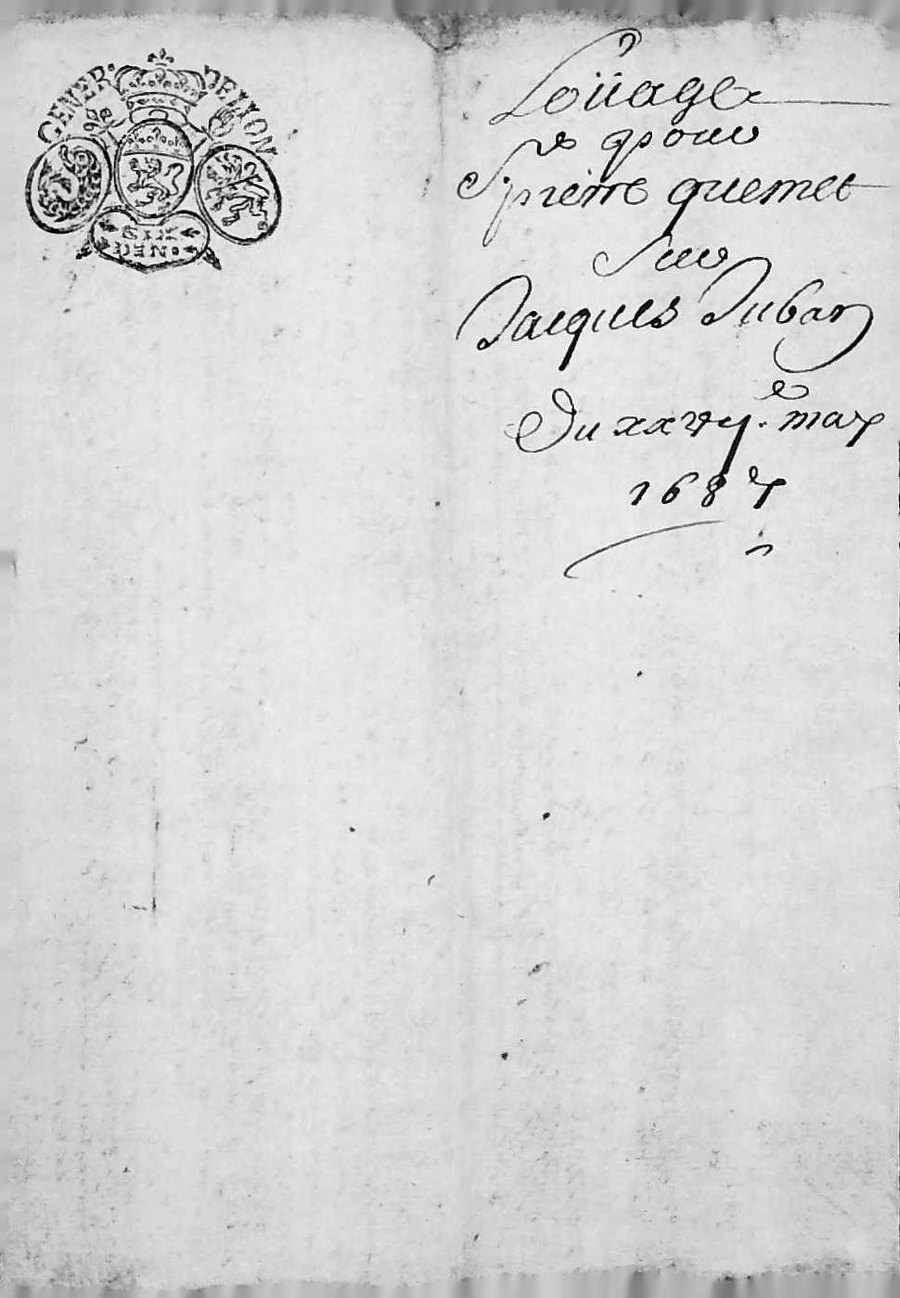 GENER. DE LION
SIX
DEN.
Loüage
pour
Sr pierre quemet
Sur
Jacques Juban
Du xxvije. may
1687